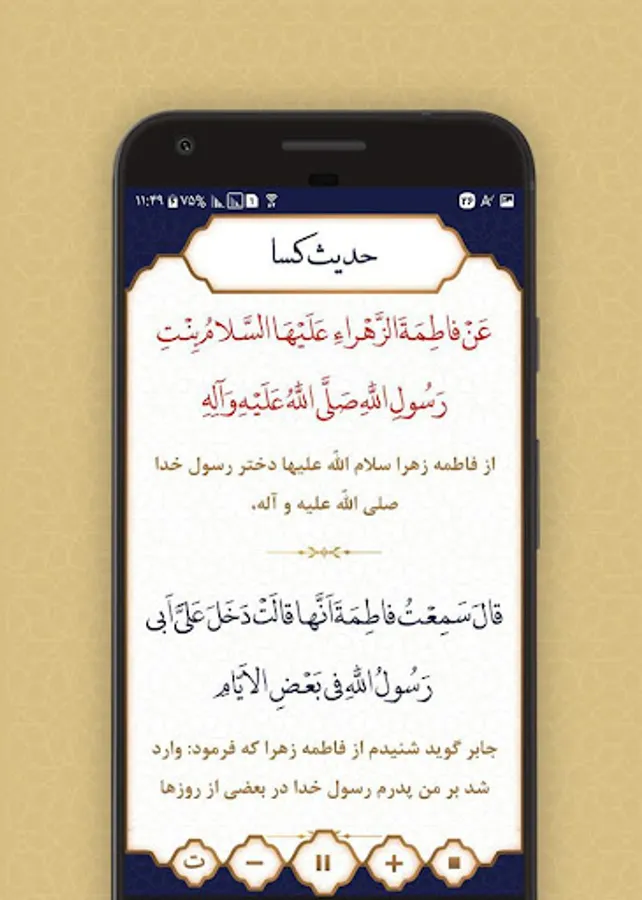 ۱۱:۴۹ ۷۵% 1 ۲۶
حدیث کسا
عَنْ فاطِمَةَ الزَّهْراءِ عَلَیْهَا السَّلامُ بِنْتِ
رَسُولِ اللهِ صَلَّی اللهُ عَلَیْهِ وَآلِهِ
از فاطمه زهرا سلام الله علیها دختر رسول خدا
صلی الله علیه و آله،
قالَ سَمِعْتُ فاطِمَةَ اَنَّها قالَتْ دَخَلَ عَلَیَّ اَبی
رَسُولُ اللهِ فی بَعْضِ الاَیّامِ
جابر گوید شنیدم از فاطمه زهرا که فرمود: وارد
شد بر من پدرم رسول خدا در بعضی از روزها
ت − +